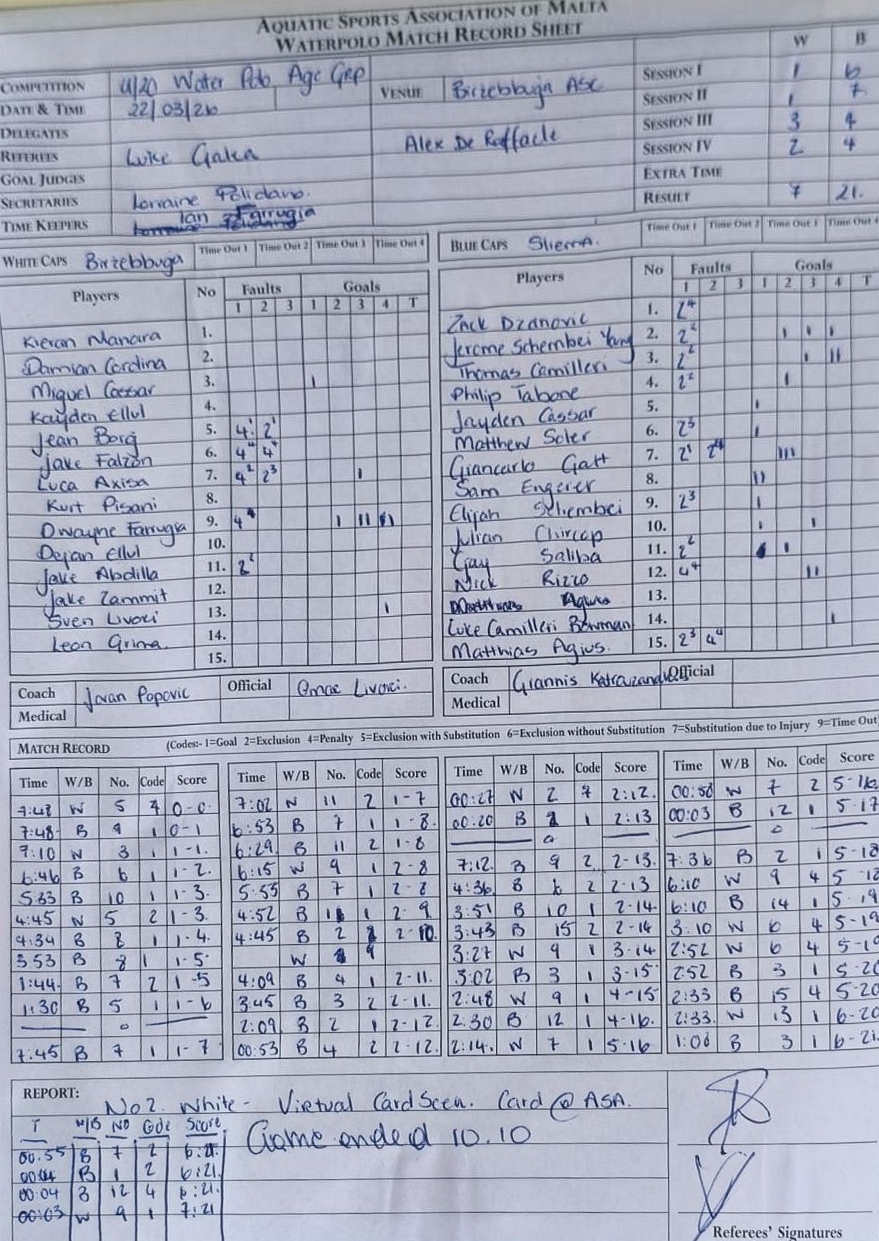 AQUATIC SPORTS ASSOCIATION OF MALTA
WATERPOLO MATCH RECORD SHEET
W B
COMPETITION U/20 Water Polo Age Grp
VENUE Birzebbuga ASC
DATE & TIME 22/03/26
DELEGATES
REFEREES Luke Galea Alex De Raffaele
GOAL JUDGES
SECRETARIES Lorraine Polidano.
TIME KEEPERS Ian Farrugia
SESSION I 1 6
SESSION II 1 7
SESSION III 3 4
SESSION IV 2 4
EXTRA TIME
RESULT 7 21.
WHITE CAPS Birzebbuga Time Out 1 Time Out 2 Time Out 3 Time Out 4
Players No Faults Goals
1 2 3 1 2 3 4 T
Kieran Manara 1.
Damian Cordina 2.
Miguel Cassar 3. I
Kayden Ellul 4.
Jean Borg 5. 4¹ 2¹
Jake Falzon 6. 4⁴ 4⁴
Luca Axisa 7. 4² 2³ I
Kurt Pisani 8.
Dwayne Farrugia 9. 4⁴ I II
Dejan Ellul 10.
Jake Abdilla 11. 2²
Jake Zammit 12.
Sven Livori 13. I
Leon Grima 14.
15.
Coach Jovan Popovic Official Omar Livori.
Medical
BLUE CAPS Sliema. Time Out 1 Time Out 2 Time Out 3 Time Out 4
Players No Faults Goals
1 2 3 1 2 3 4 T
Zack Dzanovic 1. 2⁴
Jerome Schembei Yang 2. 2² I I I
Thomas Camilleri 3. 2² I II
Philip Tabone 4. 2² I
Jayden Cassar 5. I
Matthew Soler 6. 2³ I
Giancarlo Gatt 7. 2¹ 2⁴ III
Sam Engerer 8. II
Elijah Schembei 9. 2³ I
Julian Chircop 10. I I
Gay Saliba 11. 2² I
Nick Rizzo 12. 4⁴ II
13.
Luke Camilleri Bowman 14. I
Matthias Agius. 15. 2³ 4⁴
Coach Giannis Official
Medical
MATCH RECORD (Codes:- 1=Goal 2=Exclusion 4=Penalty 5=Exclusion with Substitution 6=Exclusion without Substitution 7=Substitution due to Injury 9=Time Out)
Time W/B No. Code Score
7:48 W 5 4 0-0
7:48 B 9 1 0-1
7:10 W 3 1 1-1.
6:46 B 6 1 1-2.
5:33 B 10 1 1-3.
4:45 W 5 2 1-3.
4:34 B 8 1 1-4.
3:53 B 8 1 1-5
1:44 B 7 2 1-5
1:30 B 5 1 1-6
7:45 B 7 1 1-7
Time W/B No. Code Score
7:02 W 11 2 1-7
6:53 B 7 1 1-8.
6:29 B 11 2 1-8
6:15 W 9 1 2-8
5:55 B 7 1 2-8
4:52 B 11 1 2-9
4:45 B 2 2-10.
W 9
4:09 B 4 1 2-11.
3:45 B 3 2 2-11.
2:09 B 2 1 2-12.
00:53 B 4 2 2-12.
Time W/B No. Code Score
00:27 W 2 7 2:12.
00:20 B 2 1 2:13
7:12 B 9 2 2-13.
4:36 B 6 2 2-13
3:51 B 10 1 2-14.
3:43 B 15 2 2-14
3:27 W 9 1 3-14
3:02 B 3 1 3-15
2:48 W 9 1 4-15
2:30 B 12 1 4-16.
2:14. W 7 1 5-16
Time W/B No. Code Score
00:58 W 7 2 5-16
00:03 B 12 1 5-17
7:36 B 2 1 5-18
6:10 W 9 4 5-18
6:10 B 14 1 5-19
3:10 W 6 4 5-19
2:52 W 6 4 5-19
2:52 B 3 1 5-20
2:33 B 15 4 5-20
2:33. W 13 1 6-20
1:06 B 3 1 6-21
REPORT: No2. White - Virtual Card Seen. Card @ ASA.
Game ended 10.10
T W/B No Code Score
00:55 B 7 2 6:21.
00:04 B 1 2 6:21.
00:04 B 12 4 6:21.
00:03 W 9 1 7:21
Referees' Signatures